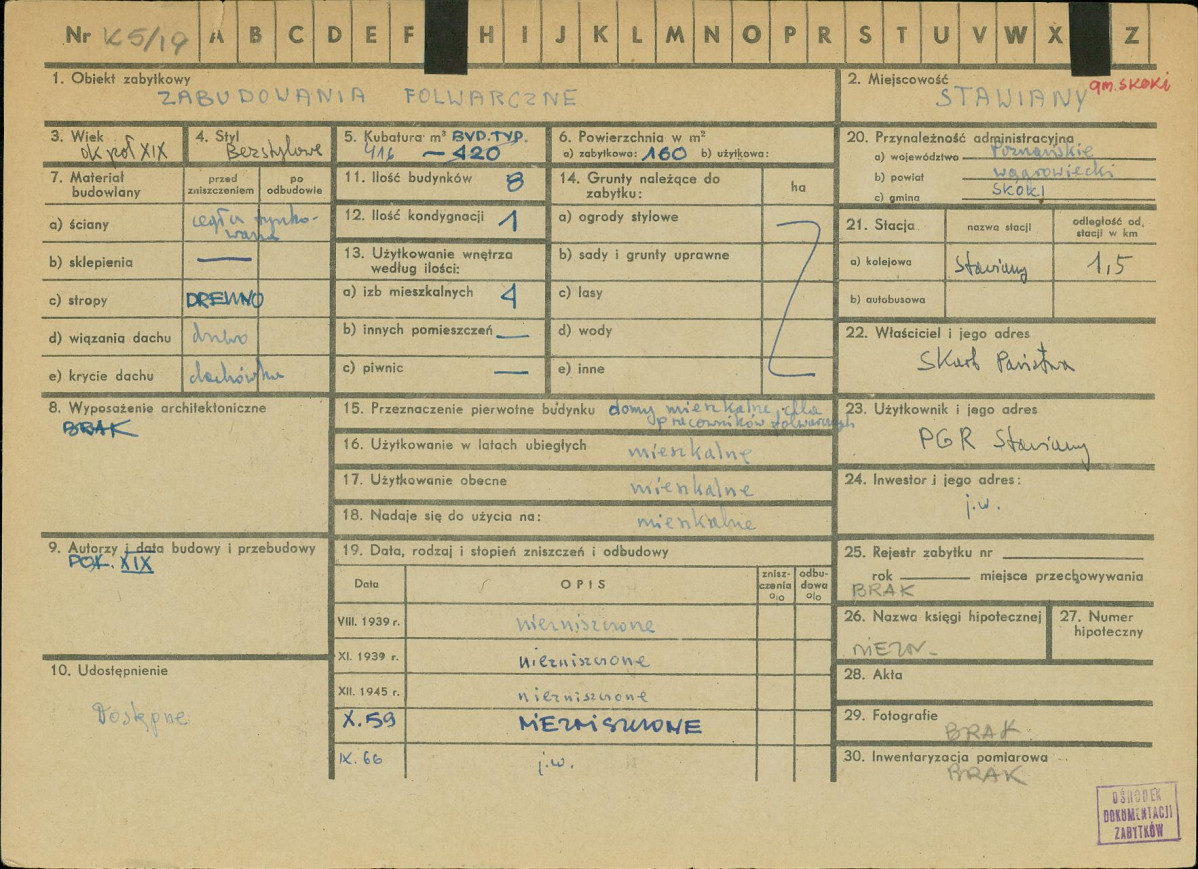 Nr K5/19 A B C D E F H I J K L M N O P R S T U V W X Z
1. Obiekt zabytkowy
ZABUDOWANIA FOLWARCZNE
2. Miejscowość
STAWIANY gm. SKOKI
3. Wiek
ok poł XIX
4. Styl
Bezstylowe
5. Kubatura m³ BUD. TYP.
416 — 420
6. Powierzchnia w m²
a) zabytkowa: 160 b) użytkowa:
20. Przynależność administracyjna
a) województwo Poznańskie
b) powiat wągrowiecki
c) gmina SKOKI
7. Materiał budowlany
przed zniszczeniem
po odbudowie
a) ściany cegła tynko-
wana
b) sklepienia —
c) stropy DREWNO
d) wiązania dachu drewno
e) krycie dachu dachówka
11. Ilość budynków 8
12. Ilość kondygnacji 1
13. Użytkowanie wnętrza
według ilości:
a) izb mieszkalnych 4
b) innych pomieszczeń —
c) piwnic —
14. Grunty należące do
zabytku:
ha
a) ogrody stylowe
b) sady i grunty uprawne
c) lasy
d) wody
e) inne
21. Stacja
nazwa stacji
odległość od,
stacji w km
a) kolejowa Stawiany 1,5
b) autobusowa
22. Właściciel i jego adres
Skarb Państwa
8. Wyposażenie architektoniczne
BRAK
15. Przeznaczenie pierwotne budynku domy mieszkalne dla
pracowników folwarcznych
16. Użytkowanie w latach ubiegłych mieszkalne
17. Użytkowanie obecne mieszkalne
18. Nadaje się do użycia na: mieszkalne
23. Użytkownik i jego adres
PGR Stawiany
24. Inwestor i jego adres:
j.w.
9. Autorzy i data budowy i przebudowy
POŁ. XIX
19. Data, rodzaj i stopień zniszczeń i odbudowy
Data
OPIS
znisz-
czenia
%
odbu-
dowa
%
VIII. 1939 r. niezniszczone
XI. 1939 r. niezniszczone
XII. 1945 r. niezniszczone
X. 59 NIEZNISZCZONE
IX. 66 j.w.
10. Udostępnienie
Dostępne
25. Rejestr zabytku nr
rok miejsce przechowywania
BRAK
26. Nazwa księgi hipotecznej
niezn-
27. Numer
hipoteczny
28. Akta
29. Fotografie
BRAK
30. Inwentaryzacja pomiarowa
BRAK
OŚRODEK
DOKUMENTACJI
ZABYTKÓW